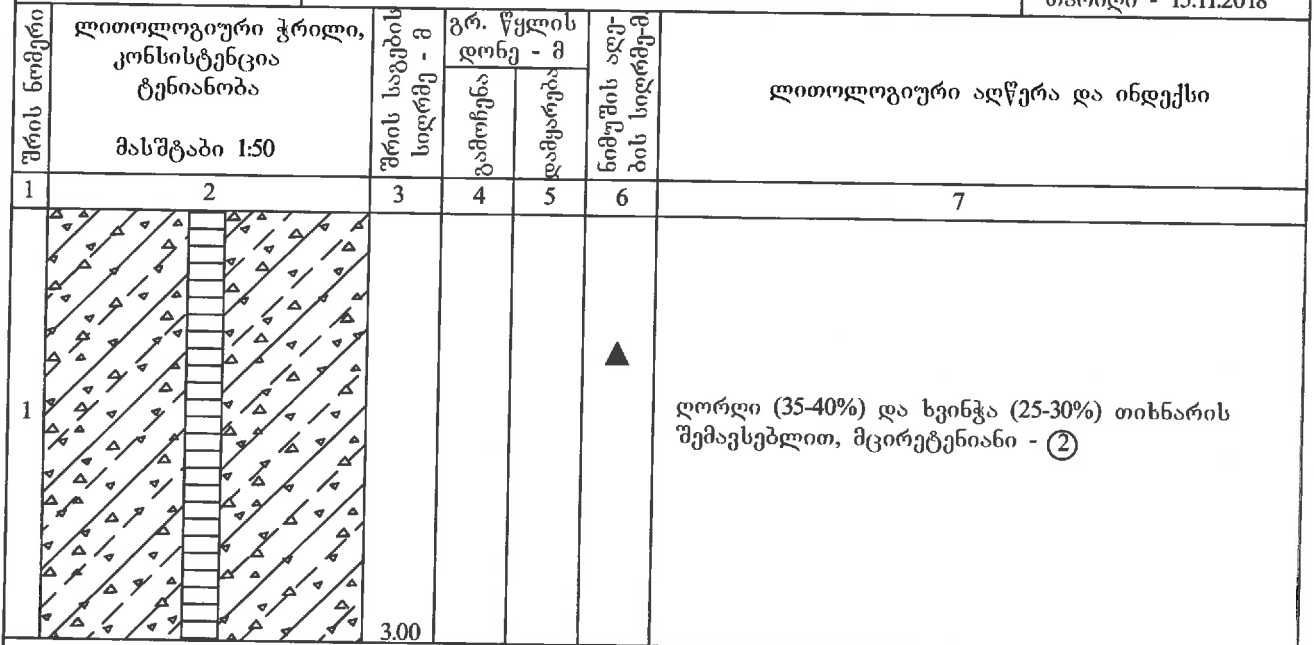 თარიღი - 15.11.2018
შრის ნომერი
ლითოლოგიური ჭრილი,
კონსისტენცია
ტენიანობა
მასშტაბი 1:50
შრის საგების
სიღრმე - მ
გრ. წყლის
დონე - მ
გამოჩენა
დამყარება
ნიმუშის აღე-
ბის სიღრმე-მ.
ლითოლოგიური აღწერა და ინდექსი
1 2 3 4 5 6 7
1
ღორღი (35-40%) და ხვინჭა (25-30%) თიხნარის
შემავსებლით, მცირეტენიანი - 2
3.00